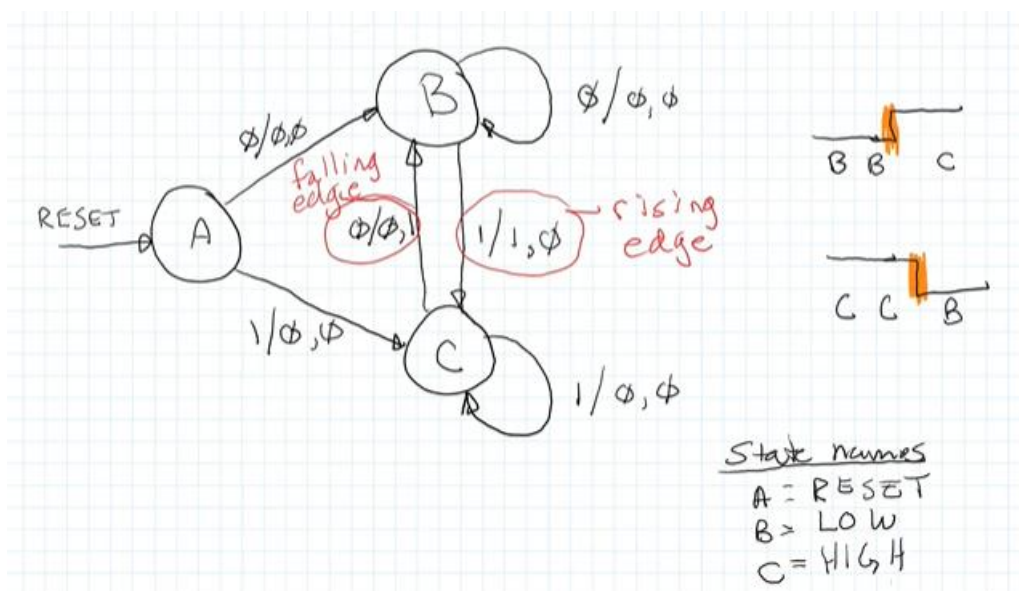 B
ϕ/ϕ,ϕ
ϕ/ϕ,ϕ
falling
edge
RESET
A
ϕ/ϕ,1
1/1,ϕ
rising
edge
1/ϕ,ϕ
C
1/ϕ,ϕ
B B C
C C B
State names
A = RESET
B = LOW
C = HIGH